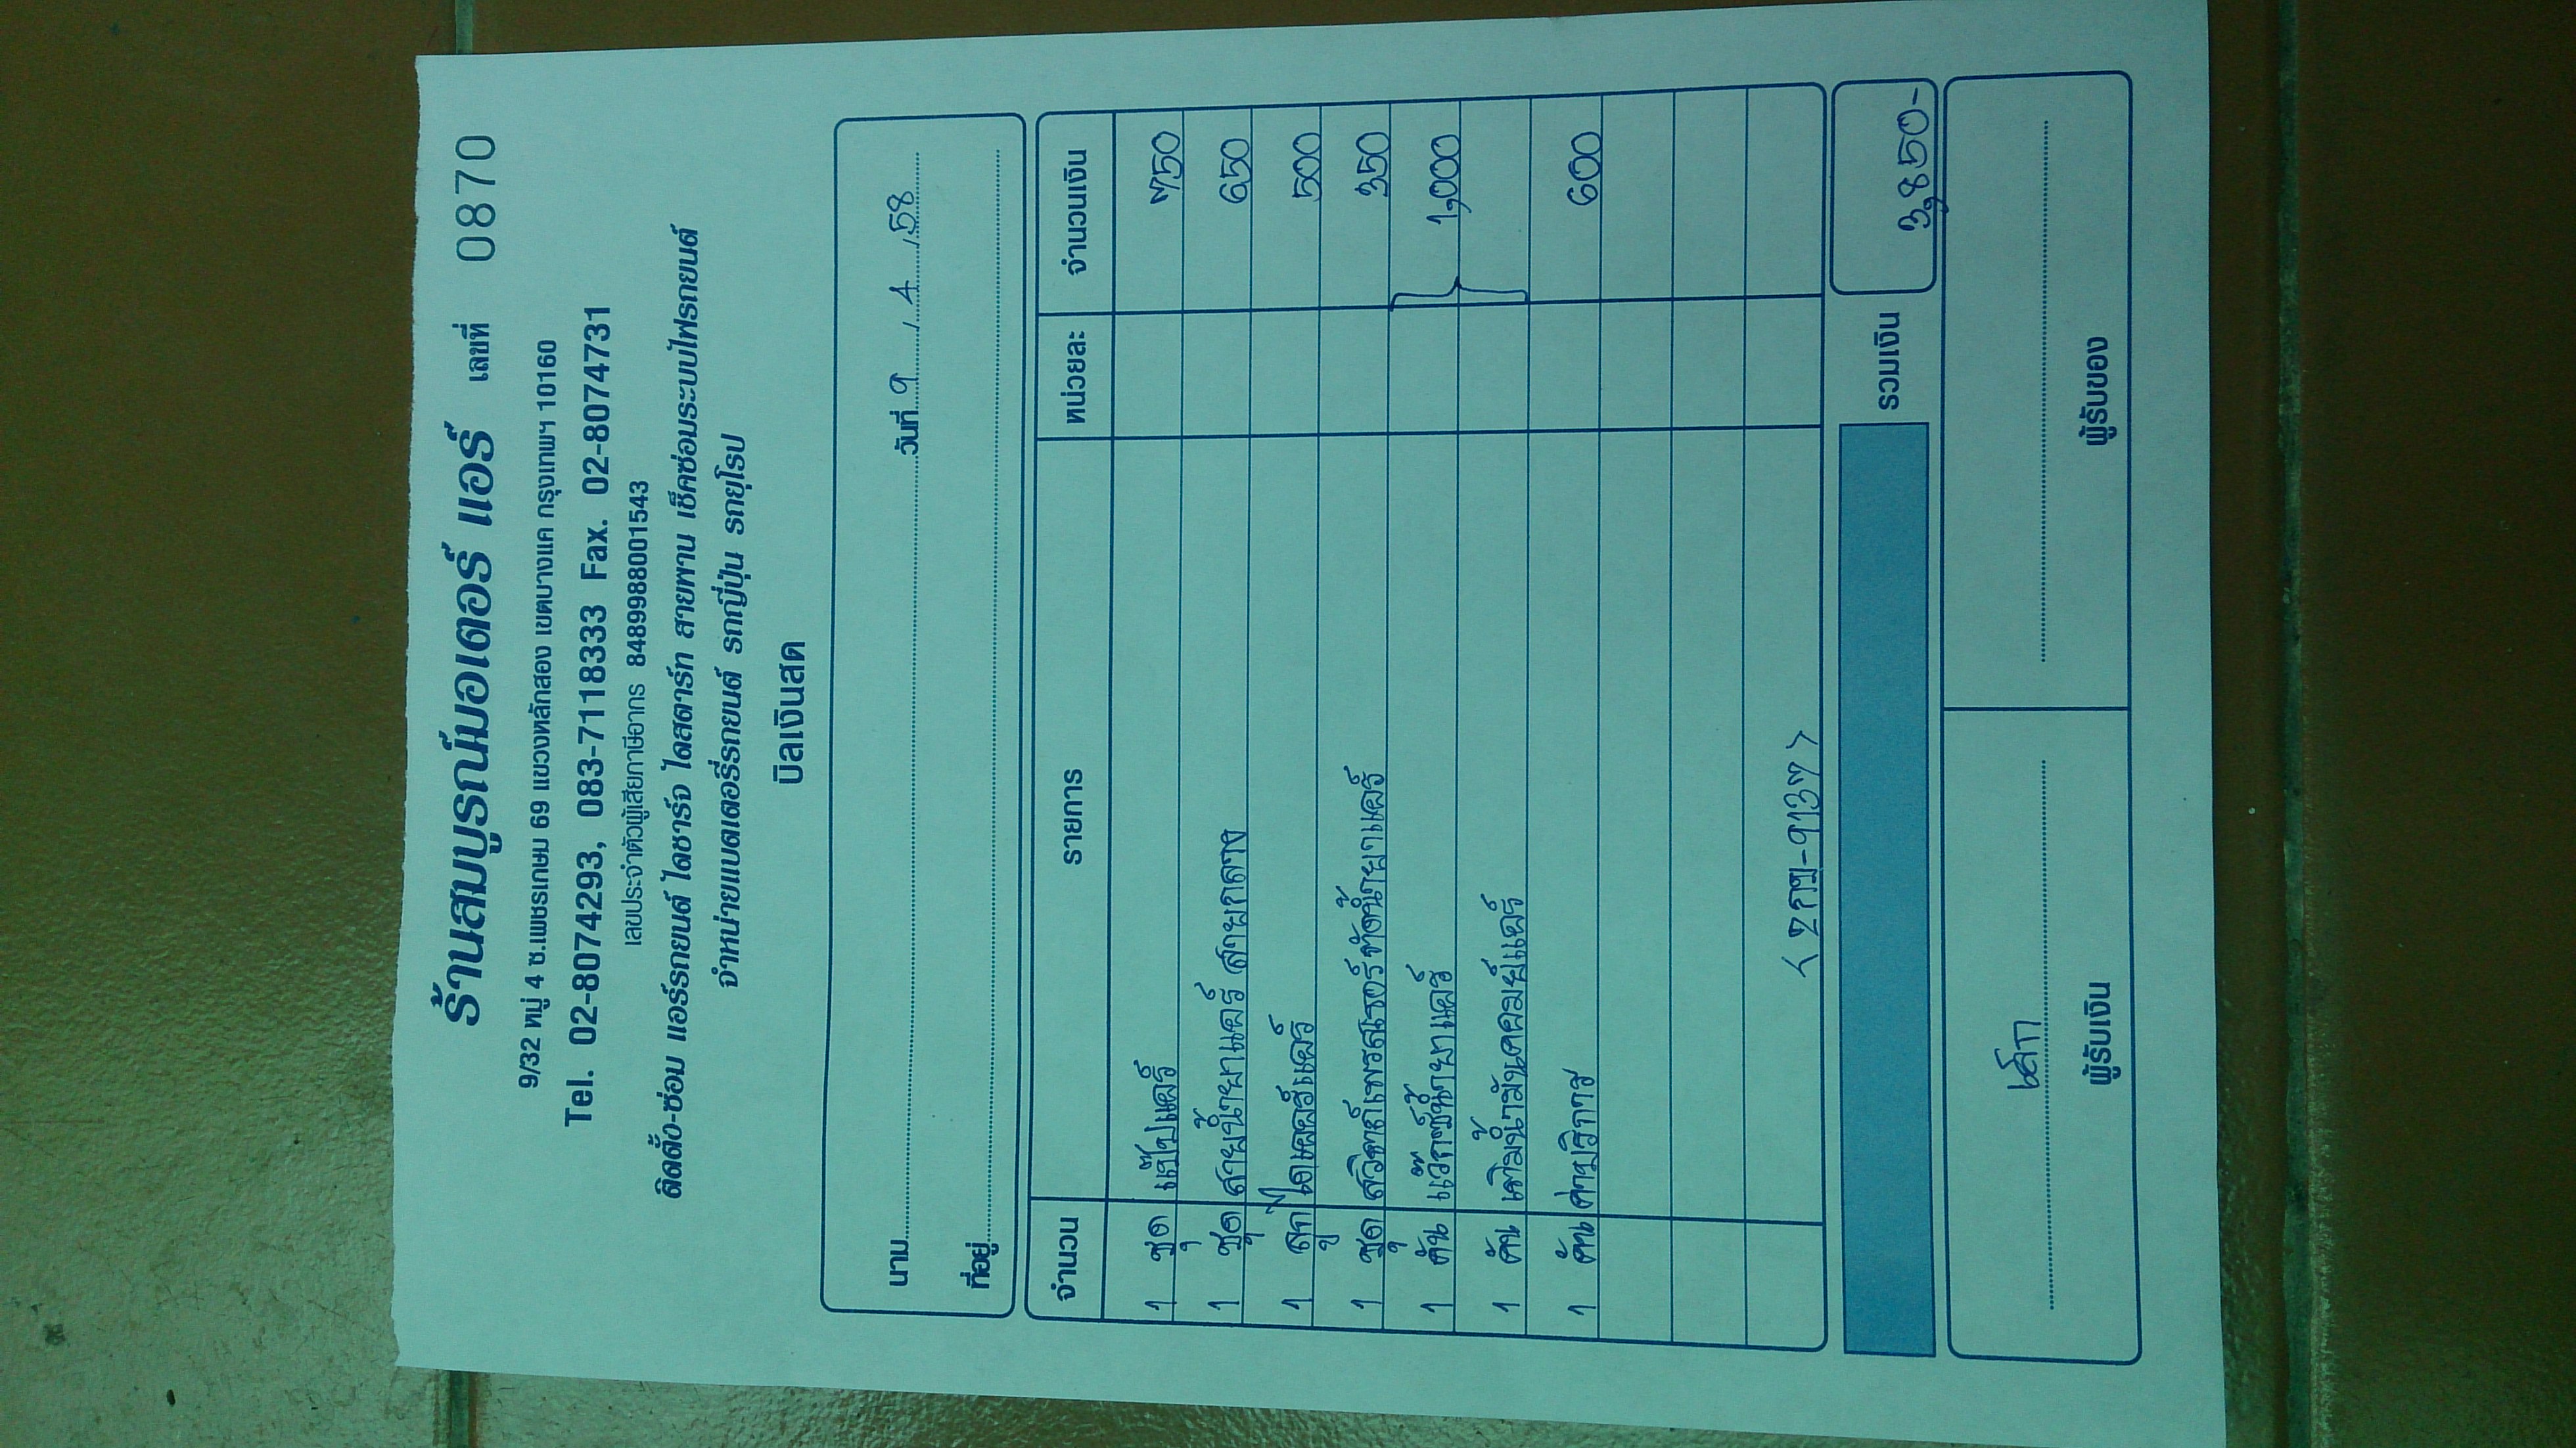 ร้านสมบูรณ์มอเตอร์ แอร์ เลขที่ 0870
9/32 หมู่ 4 ซ.เพชรเกษม 69 แขวงหลักสอง เขตบางแค กรุงเทพฯ 10160
Tel. 02-8074293, 083-7118333 Fax. 02-8074731
เลขประจำตัวผู้เสียภาษีอากร 8489988001543
ติดตั้ง-ซ่อม แอร์รถยนต์ ไดชาร์จ ไดสตาร์ท สายพาน เช็คซ่อมระบบไฟรถยนต์
จำหน่ายแบตเตอรี่รถยนต์ รถญี่ปุ่น รถยุโรป
บิลเงินสด
นาม วันที่ 9 / 4 / 58
ที่อยู่
จำนวน รายการ หน่วยละ จำนวนเงิน
1 ชุด แป๊ปแอร์ 750
1 ชุด สายน้ำยาแอร์ สายกลาง 650
1 ลูก ไดเออร์แอร์ 500
1 ชุด สวิตช์เพรสเชอร์ทั้งน้ำยาแอร์ 350
1 คัน แว๊กซ์น้ำยาแอร์ 1,000
1 คัน เติมน้ำมันคอมย์แอร์
1 คัน ค่าบริการ 600
< 2กข-9137 >
รวมเงิน 3,850-
เสก
ผู้รับเงิน ผู้รับของ